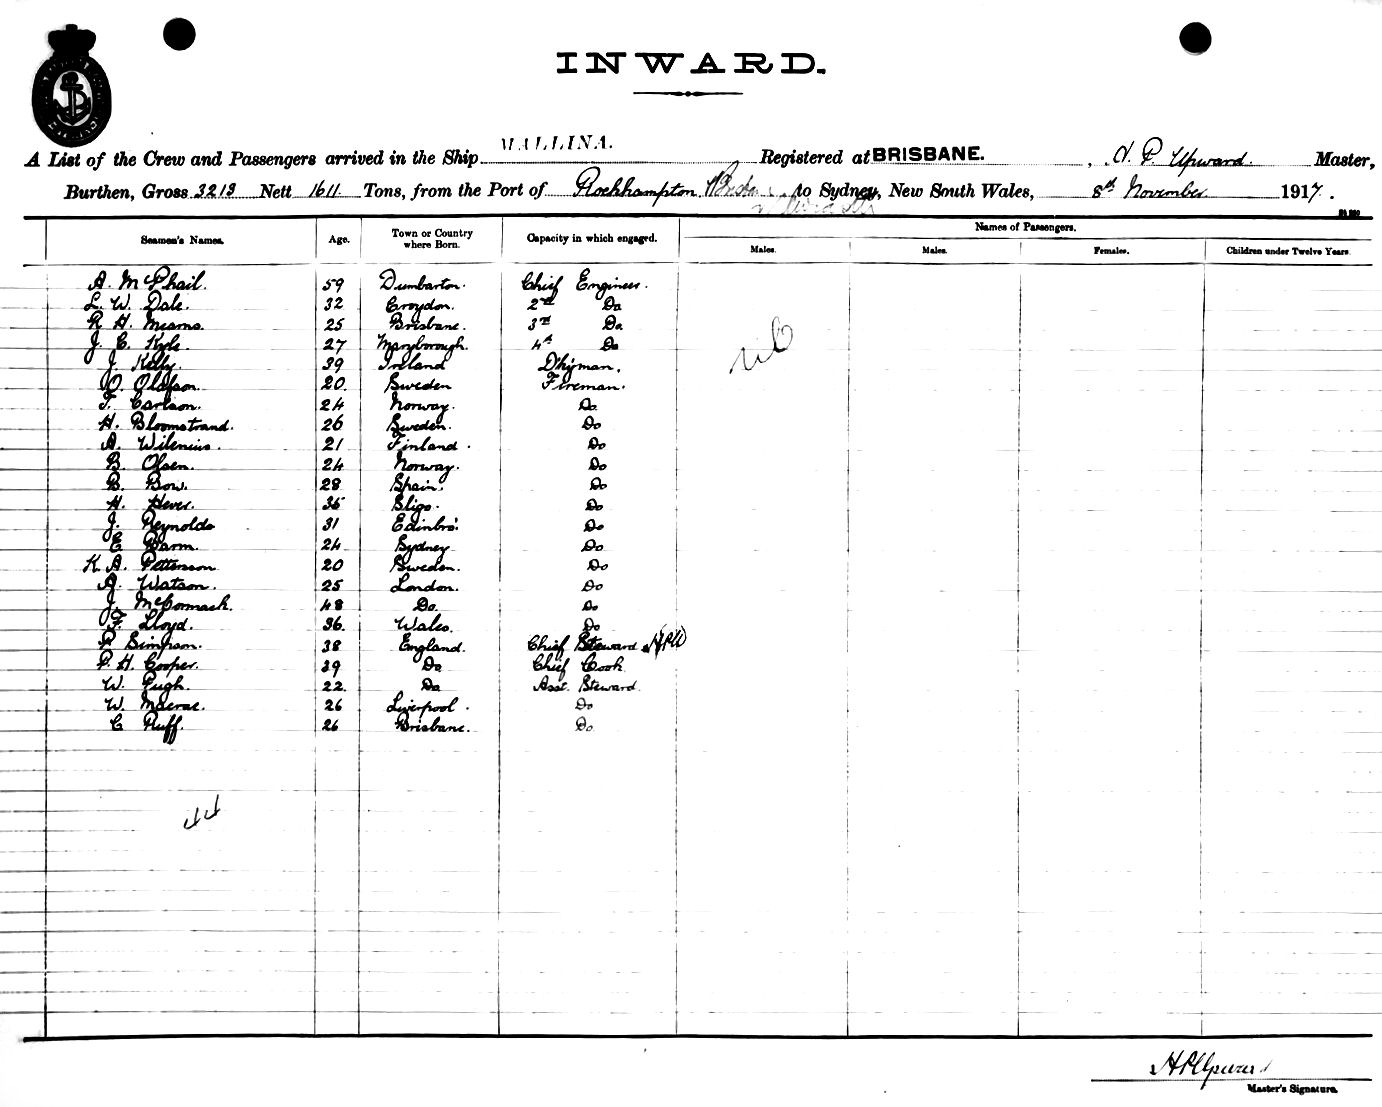 INWARD.
A List of the Crew and Passengers arrived in the Ship MALLINA. Registered at BRISBANE. , H. P. Upward. Master,
Burthen, Gross 3213 Nett 1611 Tons, from the Port of Rockhampton to Sydney, New South Wales, 8th November 1917.
Seamen's Names. Age. Town or Country where Born. Capacity in which engaged. Names of Passengers.
Males. Males. Females. Children under Twelve Years.
A. McPhail. 59 Dumbarton. Chief Engineer.
L. W. Dale. 32 Croydon. 2nd Do
R. H. Mearns. 25 Brisbane. 3rd Do
J. C. Kyle. 27 Maryborough. 4th Do
J. Kelly. 39 Ireland D'kyman.
O. Olafson. 20. Sweden Fireman.
T. Carlson. 24 Norway. Do
H. Bloomstrand. 26 Sweden. Do
A. Wilenius. 21 Finland. Do
B. Olsen. 24 Norway. Do
B. Bow. 28 Spain. Do
H. Hever. 35 Sligo. Do
J. Reynolds 31 Edinbro'. Do
E. Barm. 24 Sydney Do
K. A. Petterson 20 Sweden. Do
A. Watson. 25 London. Do
J. McCormack. 48 Do. Do
F. Lloyd. 36. Wales. Do
P. Simpson. 38 England. Chief Steward
P. H. Cooper. 39 Do Chief Cook
W. Pugh. 22. Do Asst. Steward.
W. Macrae. 26 Liverpool. Do
C. Ruff. 26 Brisbane. Do
Nil
H P Upward
Master's Signature.